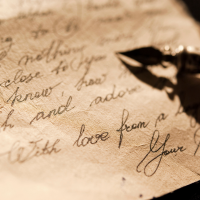 to
nothin
close to you
know, how
h and ador
With love from a
Your